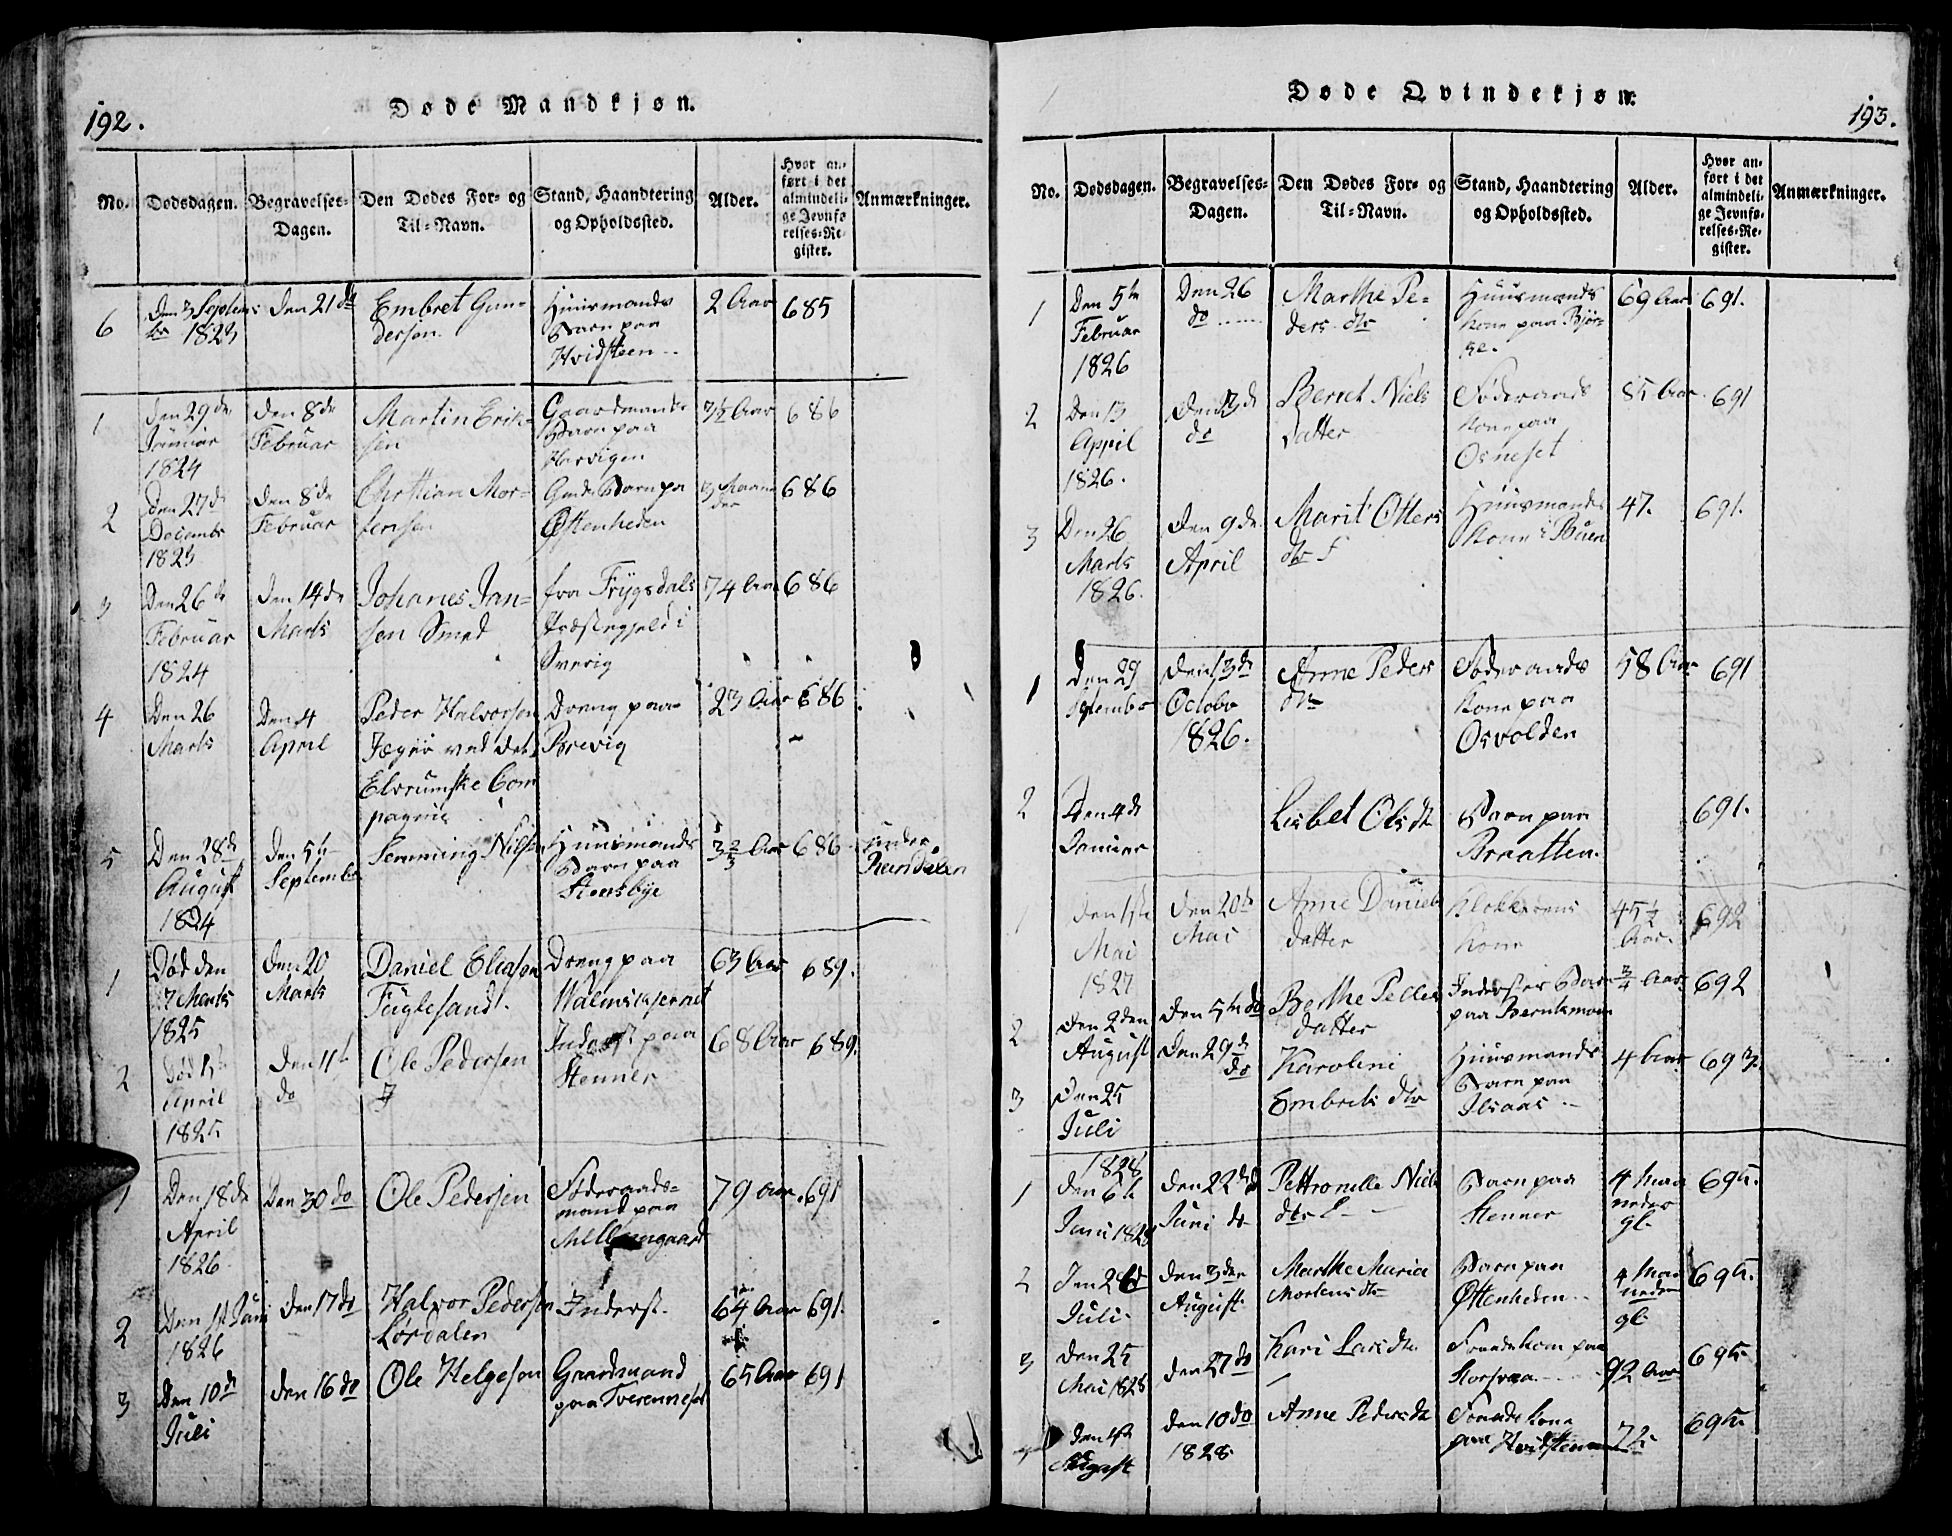 192.
Døde Mandkjøn.
No.
Dødsdagen.
Begravelses-
Dagen.
Den Dødes For- og
Til-Navn.
Stand, Haandtering
og Opholdssted.
Alder.
Hvor an-
ført i det
almindeli-
ge Jevnfø-
relses-Re-
gister.
Anmærkninger.
6
Den 3 Septem-
br 1823
Den 21 de
Embret Gun-
dersen
Huusmands
Barn paa
Hvidsteen
2 Aar
685
1
Den 29 de
Januar
1824
Den 8 de
Februar
Martin Erik-
sen
Gaardmands
Barn paa
7½ Aar
686
2
Den 27 de
Decembr
1823
Den 8 de
Februar
Christian Mor-
tensen
Barn pa
Øttenheden
3 Maane
der
686
3
Den 26 de
Februar
1824
Den 14 de
Marts
Johanes Jan-
sen Smed
fra Frygsdals
Præstegjeld i
Sverig
74 Aar
686
4
Den 26
Marts
Den 4
April
Peder Halvorsen
Jæger ved det
Elvrumske Com
pagnie
Dreng paa
Brevig
23 Aar
686
5
Den 28 de
August
1824
Den 5 te
Septembr
Semming Nilsen
Huusmands
Barn paa
Steensbye
3⅔ Aar
686
under
Rendalen
1
Død den
7 Marts
1825
Den 20
Marts
Daniel Eliasen
Fuglesand
Dreng paa
63 Aar
689.
2
Død 1ste
April
1825
Den 11 te
do
Ole Pedersen
Inderst paa
Stenner
68 Aar
689.
1
Den 18 de
April
1826
Den 30 do
Ole Pedersen
Føderaads-
mand paa
Mellemgaard
79 Aar
691
2
Den 1st Juni
1826
Den 17 do
Halvor Pedersen
Lørdalen
Inderst
64 Aar
691.
3
Den 10 de
Juli
Den 16 do
Ole Helgesen
Gaardmand
paa Tverenneset
65 Aar
691
Døde Qvindekjøn.
193.
No.
Dødsdagen.
Begravelses-
Dagen.
Den Dødes For- og
Til-Navn.
Stand, Haandtering
og Opholdssted.
Alder.
Hvor an-
ført i det
almindeli-
ge Jevnfø-
relses-Re-
gister.
Anmærkninger.
1
Den 5 te
Februar
1826
Den 26
do
Marthe Pe-
ders dtr
Huusmands
Kone paa Bjør-
ke.
69 Aar
691.
2
Den 13
Appril
1826.
Den 23 de
do
Beret Niels
datter
Føderaads
Kone paa
Osneset
85 Aar
691
3
Den 26
Marts
1826.
Den 9 de
April
Marit Otters
dtr
Huusmands
Kone i Buen
47.
691.
1
Den 29
Septembr
Den 13 de
Octobr
1826.
Anne Peders
dtr
Føderaads
Kone paa
Osvolden
58 Aar
691
2
Den 4 de
Januar
Lisbet Ols dtr
Barn paa
Braatten.
691.
1
Den 1ste
Mai
1827
Den 20 de
Mai
Anne Daniels
datter
Klokkerens
Kone
45½
Aar.
692
2
Den 2den
August
Den 5 te do
Berthe Peders
datter
Inderster Barn
paa Berntmoen
¾ Aar
692
3
Den 25
Juli
Den 29 de
do
Karolini
Embrets dtr
Huusmands
Barn paa
Ilsaas
4 Aar
693.
1
1828
Den 6 te
Juni 1828
Den 22 de
Juni do
Pettronelle Niels
dtr
Barn paa
Stenner
4 Maa
neder
gl.
695.
2
Den 26
Juli
Den 3 den
August
Marthe Maria
Mortens dtr
Barn paa
Øttenheden
4 Maa
neder
gl.
695.
3
Den 25
Mai 1828
Den 27 do
Kari Lars dtr
92 Aar
695.
Den 4 de
August
Den 10 do
1828
Anne Peders dtr
paa Hvidsteen
72
695.